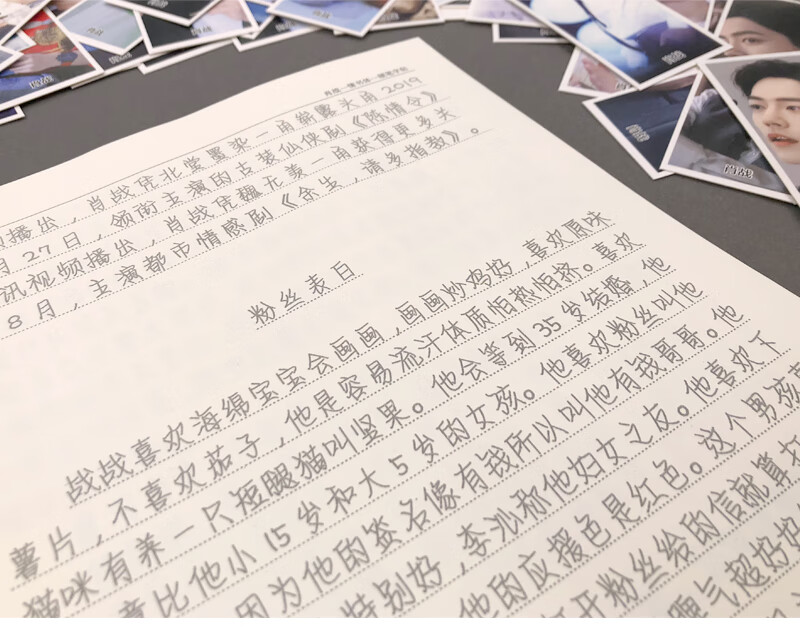 肖战
肖战
肖战
肖战
肖战
播出，肖战凭北堂墨染一角崭露头角2019
月27日，领衔主演的古装仙侠剧《陈情令》
讯视频播出，肖战凭魏无羡一角获得更多关
8月，主演都市情感剧《余生，请多指教》。
粉丝表白
战战喜欢海绵宝宝会画画，画画炒鸡好，喜欢原味
薯片，不喜欢茄子，他是容易流汗体质怕热怕挤。喜欢
猫咪有养一只短腿猫叫坚果。他会等到35岁结婚，他
意比他小15岁和大5岁的女孩。他喜欢粉丝叫他
因为他的签名像有钱所以叫他有钱哥哥。他
特别好，李沁称他妇女之友。他喜欢下
他的应援色是红色。这个男孩
打开粉丝给的信就算打
脾气超好好